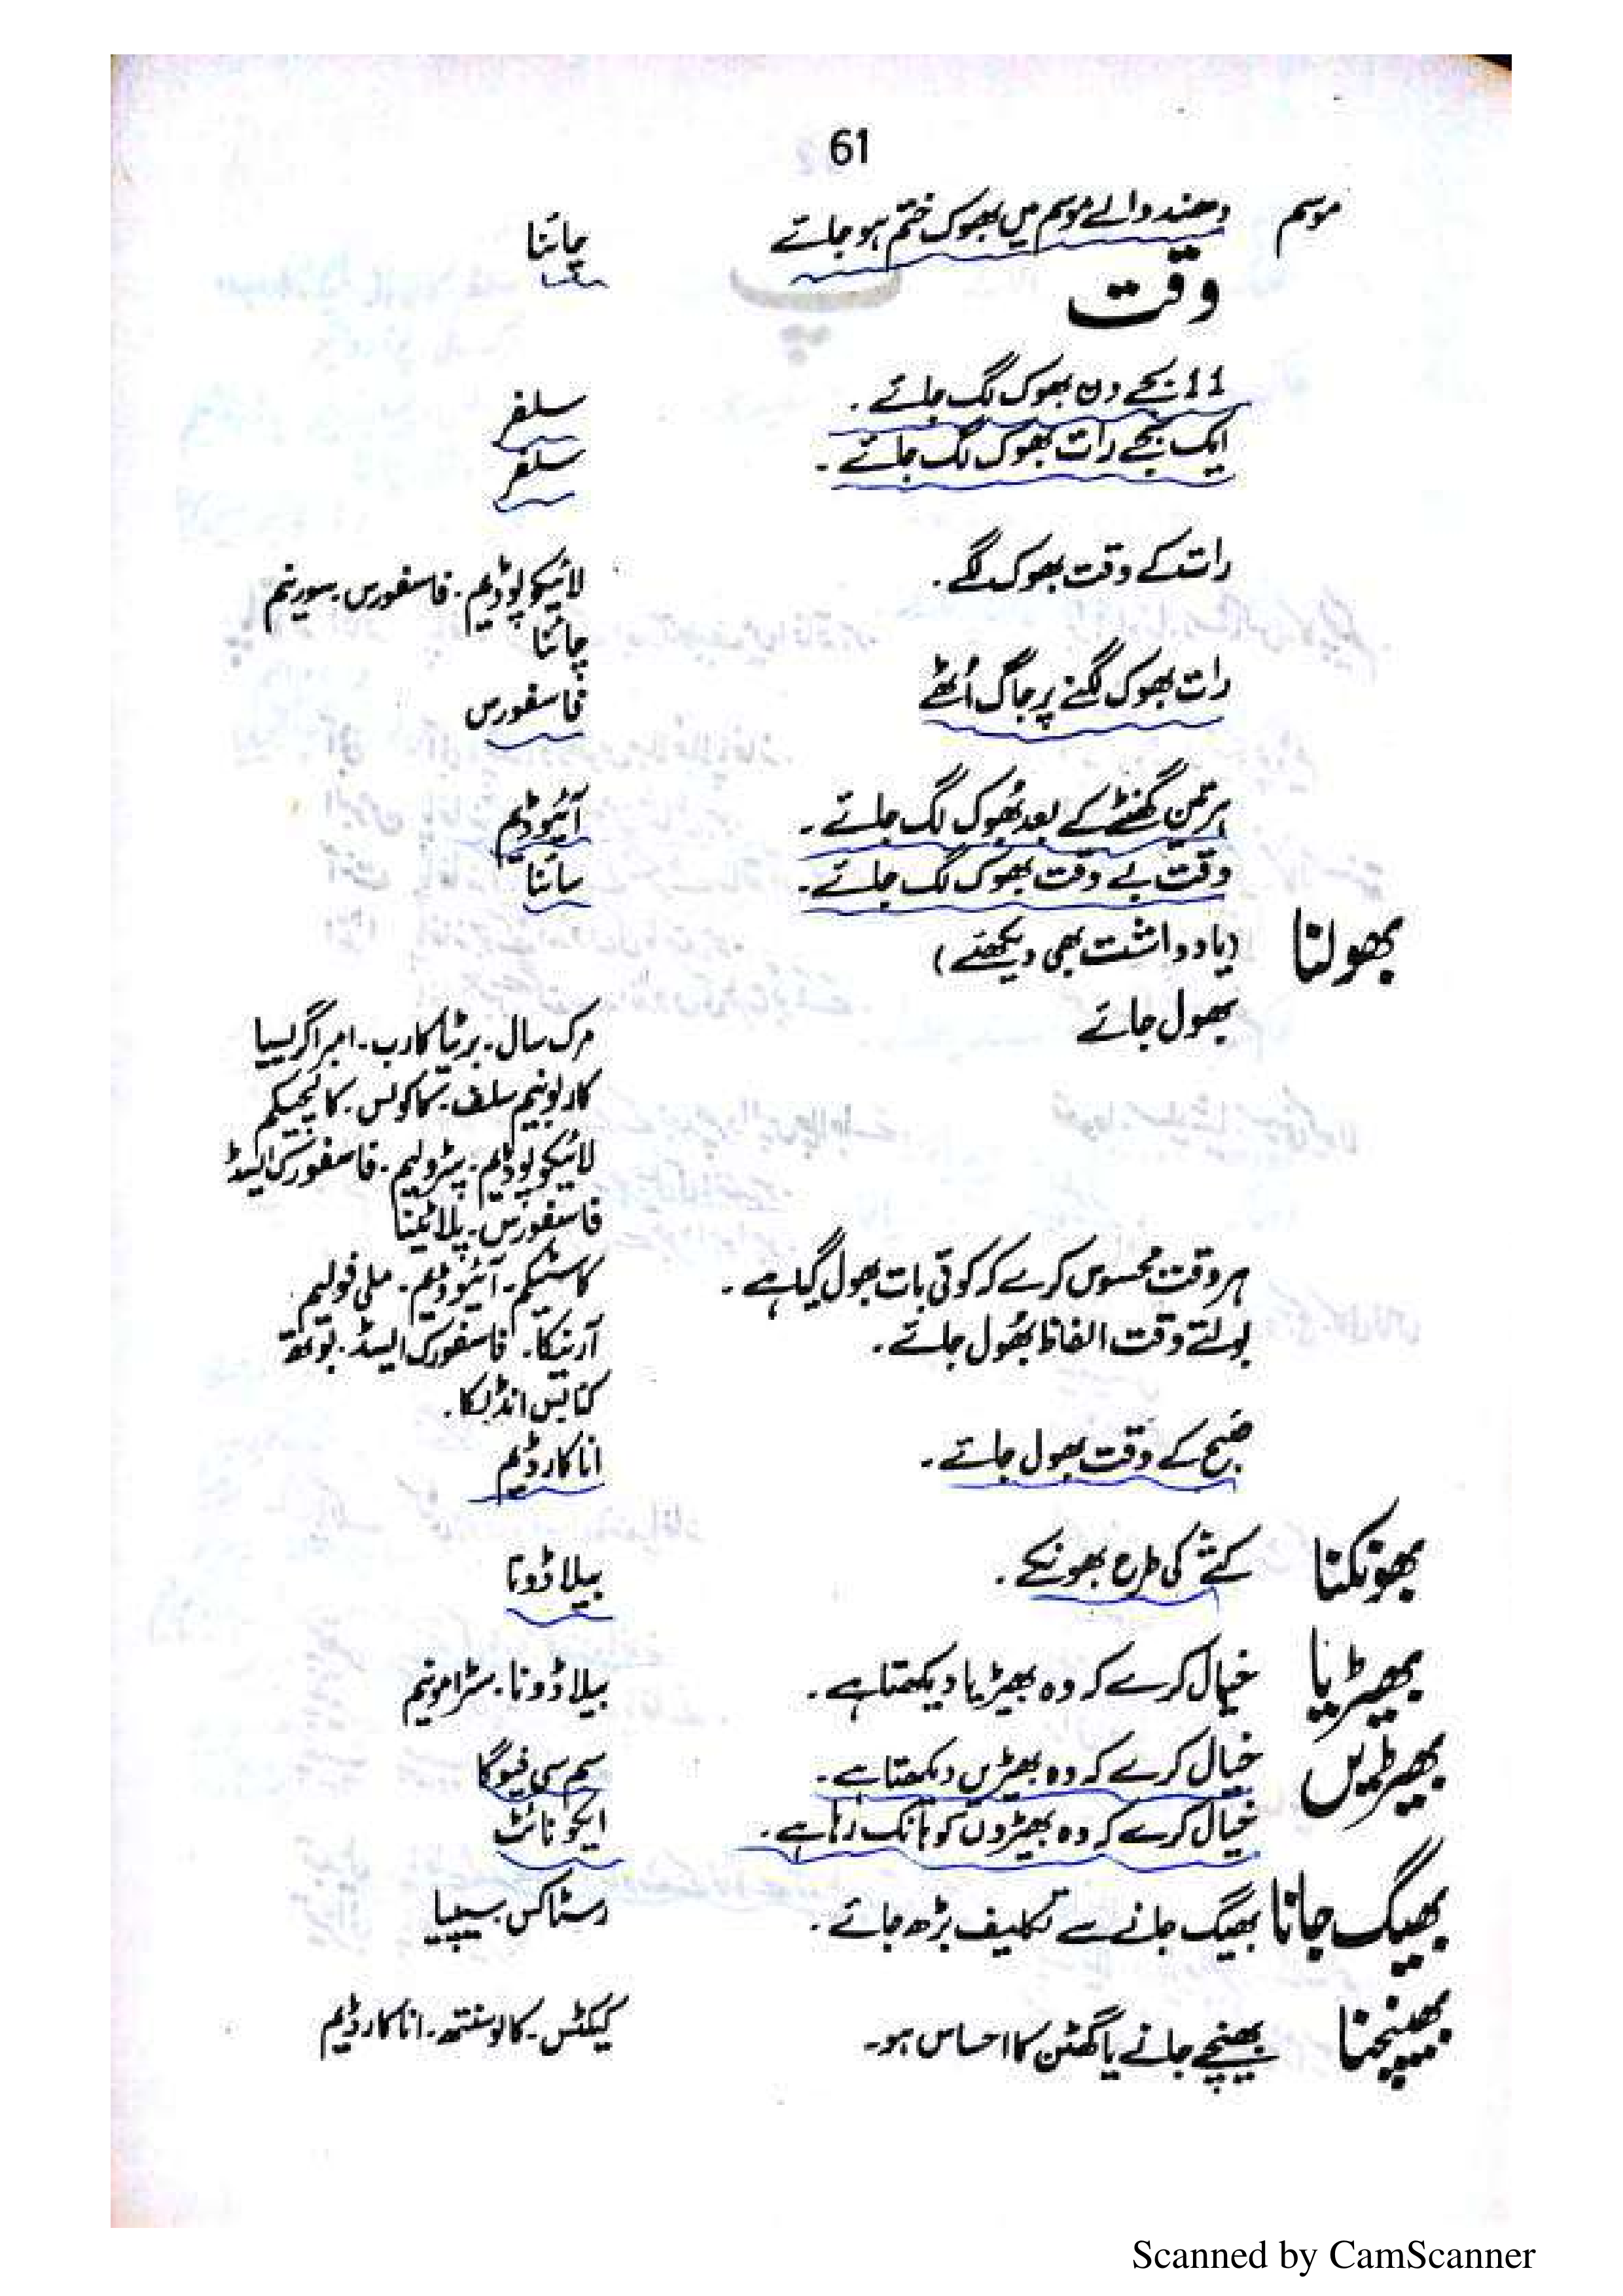 61
موسم دھند والے موسم میں بھوک ختم ہو جائے چائنا
وقت
11 بجے دن بھوک لگ جائے۔ سلفر
ایک بجے رات بھوک لگ جائے۔ سلفر
رات کے وقت بھوک لگے۔ لائیکوپوڈیم۔ فاسفورس۔ سورنیم
چائنا
رات بھوک لگنے پر جاگ اُٹھے فاسفورس
ہر تین گھنٹے کے بعد بھُوک لگ جائے۔ آئیوڈیم
وقت بے وقت بھوک لگ جائے۔ سائنا
بھولنا (یادداشت بھی دیکھئے)
بھول جائے مرک سال۔ برٹیا کارب۔ امبرا گریسیا
کاربونیم سلف۔ کاکولس۔ کالچیکم
لائیکوپوڈیم۔ پٹرولیم۔ فاسفورک ایسڈ
فاسفورس۔ پلاٹینا
ہر وقت محسوس کرے کہ کوئی بات بھول گیا ہے۔ کاسٹیکم۔ آئیوڈیم۔ ملی فولیم
بولتے وقت الفاظ بھُول جائے۔ آرنیکا۔ فاسفورک ایسڈ۔
کنابس انڈیکا۔
صبح کے وقت بھول جائے۔ اناکارڈیم
بھونکنا کتے کی طرح بھونکے۔ بیلاڈونا
بھیڑیا خیال کرے کہ وہ بھیڑیا دیکھتا ہے۔ بیلاڈونا۔ سٹرامونیم
بھیڑیں خیال کرے کہ وہ بھیڑیں دیکھتا ہے۔ سم سی فیوگا
خیال کرے کہ وہ بھیڑوں کو ہانک رہا ہے۔ ایکونائٹ
بھیگ جانا بھیگ جانے سے تکلیف بڑھ جائے۔ رسٹاکس سیپیا
بھینچنا بھینچے جانے یا گھٹن کا احساس ہو۔ کیکٹس۔ کالوسنتھ۔ اناکارڈیم
Scanned by CamScanner